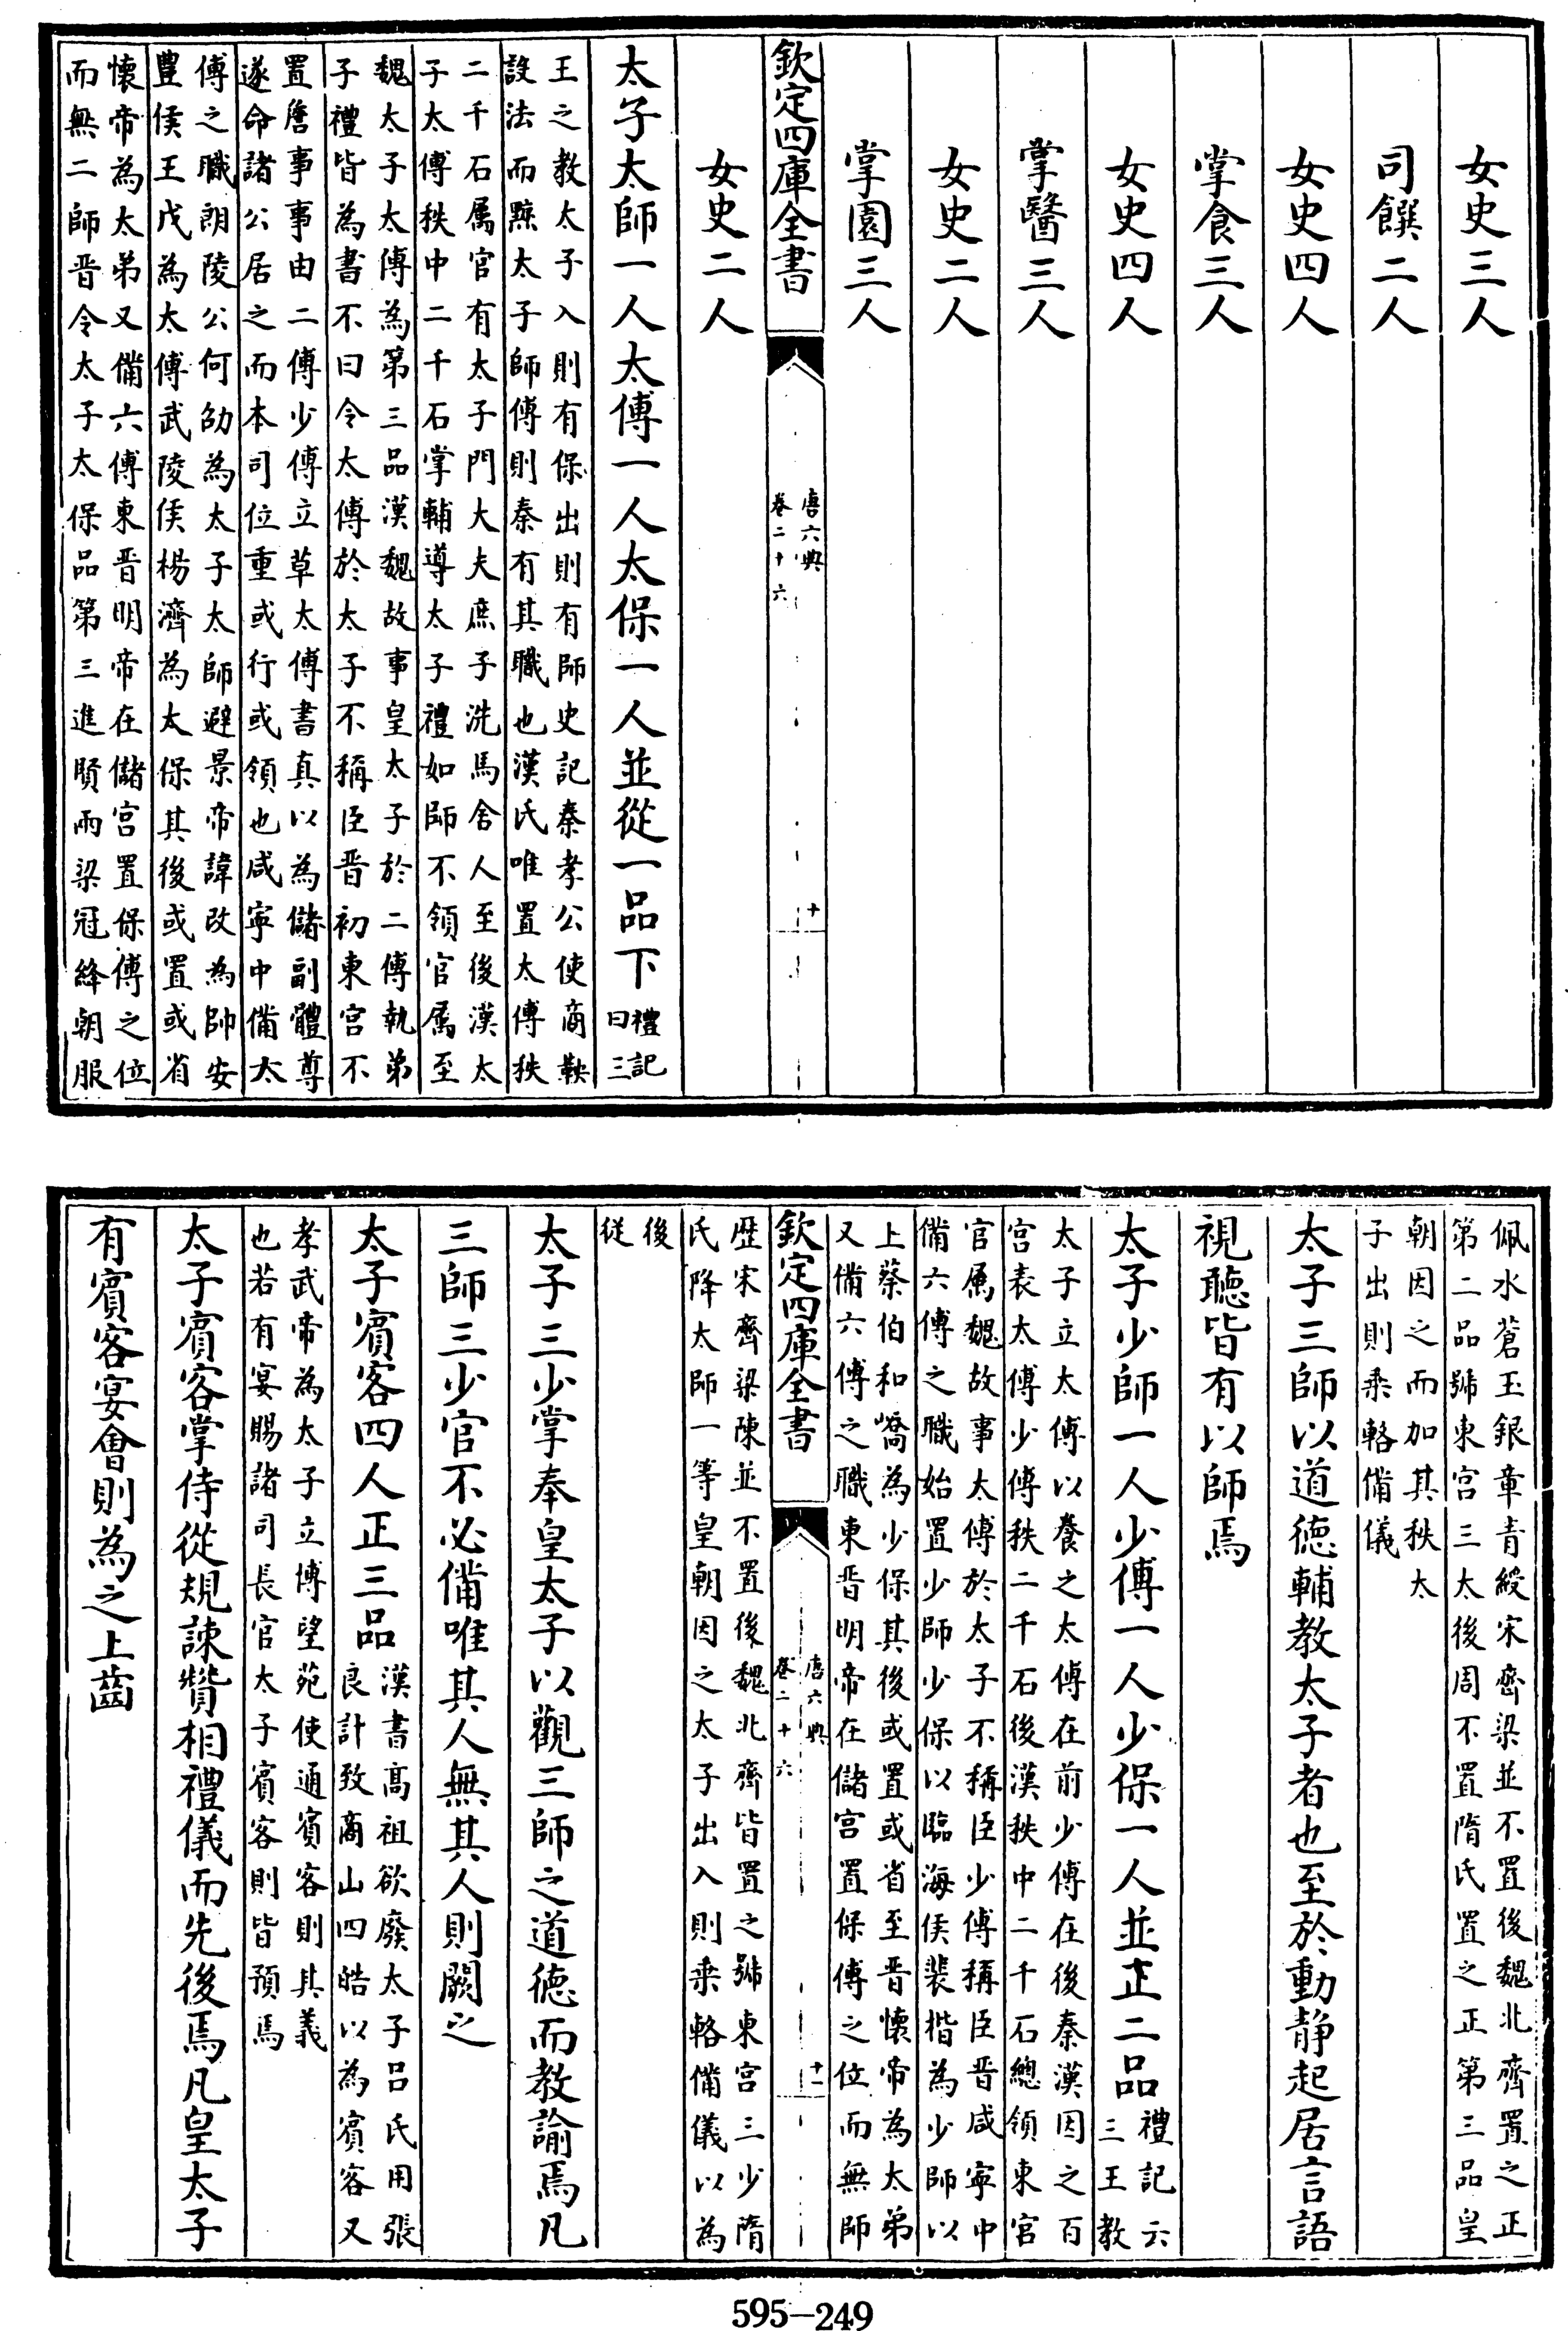 女史三人
司饌二人
女史四人
掌食三人
女史四人
掌醫三人
女史二人
掌園三人
欽定四庫全書
唐六典
卷二十六
十
女史二人
太子太師一人太傅一人太保一人並從一品下
禮記
曰三
王之教太子入則有保出則有師史記秦孝公使商鞅
設法而黥太子師傅則秦有其職也漢氏唯置太傅秩
二千石属官有太子門大夫庶子洗馬舍人至後漢太
子太傅秩中二千石掌輔導太子禮如師不領官属至
魏太子太傅為第三品漢魏故事皇太子於二傅執弟
子禮皆為書不曰令太傅於太子不稱臣晋初東宫不
置詹事事由二傅少傅立草太傅書真以為儲副體尊
遂命諸公居之而本司位重或行或領也咸寧中備太
傅之職朗陵公何劭為太子太師避景帝諱改為帥安
豐侯王戎為太傅武陵侯楊濟為太保其後或置或省
懐帝為太弟又備六傅東晋明帝在儲宫置保傅之位
而無二師晋令太子太保品第三進賢兩梁冠絳朝服
佩水蒼玉銀章青綬宋齊梁並不置後魏北齊置之正
第二品號東宫三太後周不置隋氏置之正第三品皇
朝因之而加其秩太
子出則乗輅備儀
太子三師以道徳輔教太子者也至於動静起居言語
視聽皆有以師焉
太子少師一人少傅一人少保一人並正二品
禮記云
三王教
太子立太傅以養之太傅在前少傅在後秦漢因之百
官表太傅少傅秩二千石後漢秩中二千石總領東宫
官属魏故事太傅於太子不稱臣少傅稱臣晋咸寧中
備六傅之職始置少師少保以臨海侯裴楷為少師以
上蔡伯和嶠為少保其後或置或省至晋懐帝為太弟
又備六傅之職東晋明帝在儲宫置保傅之位而無師
欽定四庫全書
唐六典
卷二十六
十一
歴宋齊梁陳並不置後魏北齊皆置之號東宫三少隋
氏降太師一等皇朝因之太子出入則乗輅備儀以為
後
從
太子三少掌奉皇太子以觀三師之道徳而教諭焉凡
三師三少官不必備唯其人無其人則闕之
太子賓客四人正三品
漢書髙祖欲廢太子吕氏用張
良計致商山四皓以為賓客又
孝武帝為太子立博望苑使通賓客則其義
也若有宴賜諸司長官太子賓客則皆預焉
太子賓客掌侍從規諫贊相禮儀而先後焉凡皇太子
有賓客宴會則為之上齒
595-249